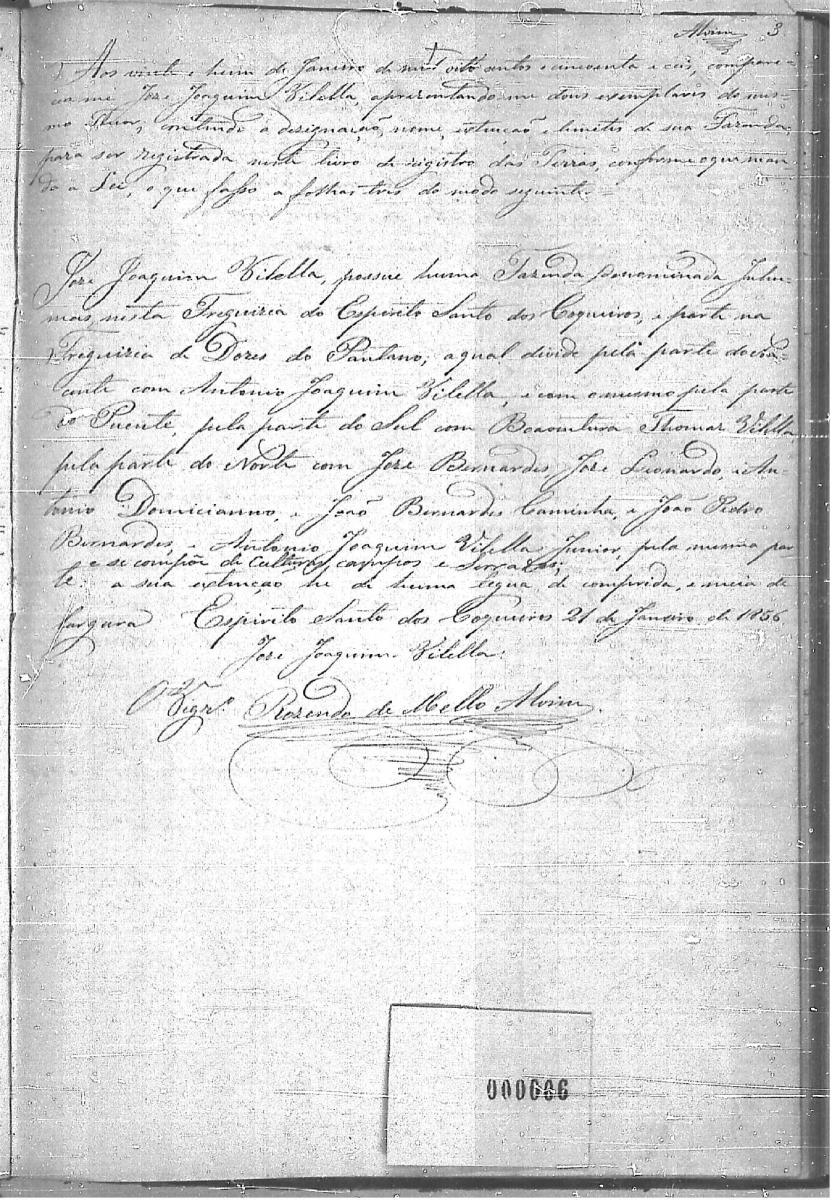 Alvim 3
Aos vinte e hum de Janeiro de mil oito centos e cincoenta e ceis, compare-
ceu me Joze Joaquim Vilella, aprezentando me dous exemplares do mes-
mo theor, contendo a designação, nome, extenção e limites de sua Fazenda,
para ser registrada neste livro de registro das Terras, conforme o que man-
da a Lei, o que fasso a folhas tres do modo seguinte=
Joze Joaquim Vilella, possue huma Fazenda denominada
nesta Freguizia do Espirito Santo dos Coqueiros, e parte na
Freguizia de Dores do Pantano, a qual divide pela parte do Na-
cente com Antonio Joaquim Vilella, e com o mesmo pela parte
do Puente, pela parte do Sul com Boaventura Thomaz Vilella
pela parte do Norte com Joze Bernardes, Joze Leonardo, e An-
tonio Domicianno, e João Bernardes Caminha, e João Pedro
Bernardes, e Antonio Joaquim Vilella Junior, pela mesma par
e se compõe de Culturas, campos e Serrados;
te: a sua extenção he de huma legua de comprida, e meia de
largura Espirito Santo dos Coqueiros 21 de Janeiro de 1856
Joze Joaquim Vilella.
O Vigr.º Rozendo de Mello Alvim.
000006